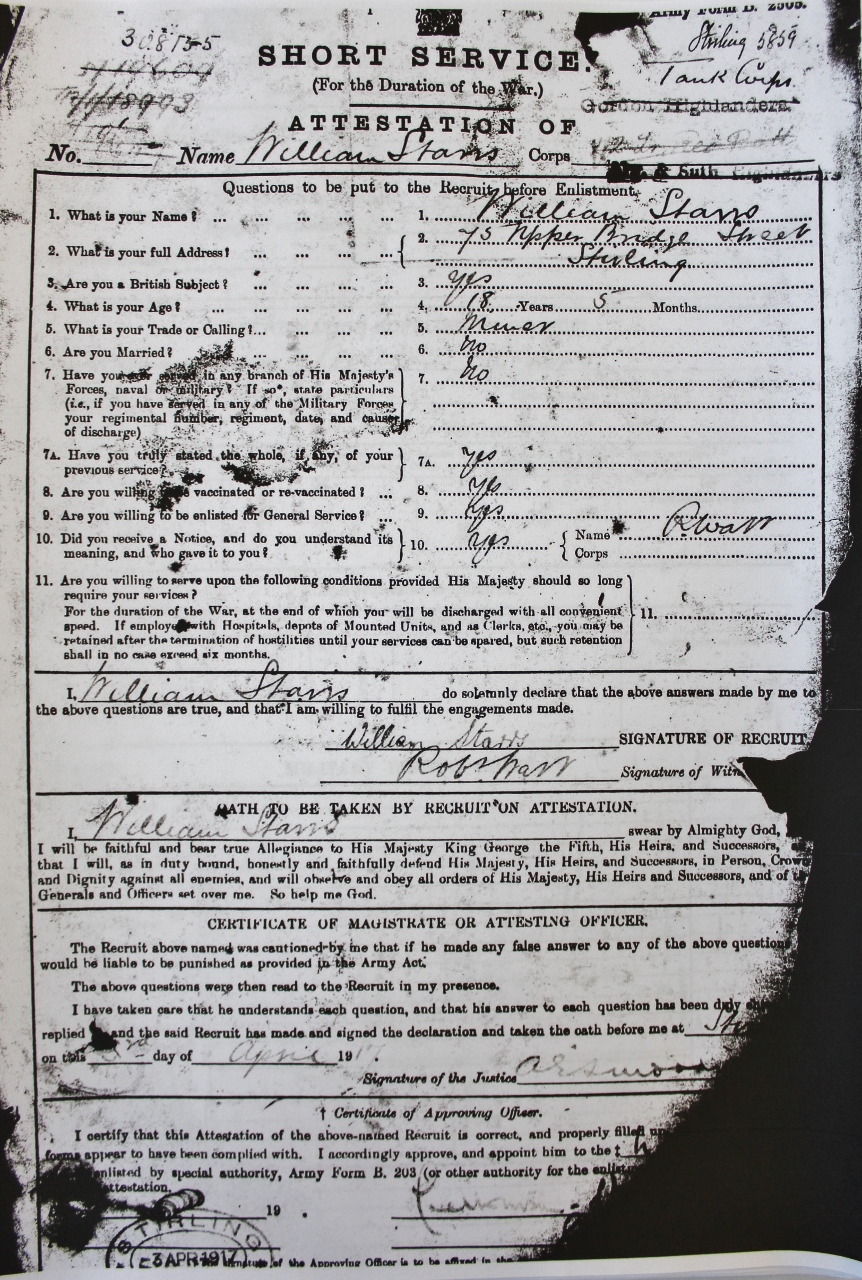 Army Form B. 2505.
308155
Stirling 5859
SHORT SERVICE.
Tank Corps
(For the Duration of the War.)
Gordon Highlanders
ATTESTATION OF
No. Name William Starrs Corps
& Suth Highlanders
Questions to be put to the Recruit before Enlistment.
1. What is your Name? ... ... ... ... 1. William Starrs
2. What is your full Address? ... ... ... 2. 75 Upper Bridge Street
Stirling
3. Are you a British Subject? ... ... ... 3. Yes
4. What is your Age? ... ... ... ... 4. 18 Years 5 Months.
5. What is your Trade or Calling? ... ... ... 5. Miner
6. Are you Married? ... ... ... ... 6. No
7. Have you ever served in any branch of His Majesty's 7. No
Forces, naval or military? If so*, state particulars
(i.e., if you have served in any of the Military Forces
your regimental number, regiment, date, and cause
of discharge)
7A. Have you truly stated the whole, if any, of your 7A. Yes
previous service?
8. Are you willing to be vaccinated or re-vaccinated? ... 8. Yes
9. Are you willing to be enlisted for General Service? ... 9. Yes
10. Did you receive a Notice, and do you understand its 10. Yes Name R Watt
meaning, and who gave it to you? Corps
11. Are you willing to serve upon the following conditions provided His Majesty should so long
require your services?
For the duration of the War, at the end of which you will be discharged with all convenient 11.
speed. If employed with Hospitals, depots of Mounted Units, and as Clerks, etc., you may be
retained after the termination of hostilities until your services can be spared, but such retention
shall in no case exceed six months.
I, William Starrs do solemnly declare that the above answers made by me to
the above questions are true, and that I am willing to fulfil the engagements made.
William Starrs SIGNATURE OF RECRUIT
Robt Watt Signature of Witn
OATH TO BE TAKEN BY RECRUIT ON ATTESTATION.
I, William Starrs swear by Almighty God,
I will be faithful and bear true Allegiance to His Majesty King George the Fifth, His Heirs, and Successors,
that I will, as in duty bound, honestly and faithfully defend His Majesty, His Heirs, and Successors, in Person, Crow
and Dignity against all enemies, and will observe and obey all orders of His Majesty, His Heirs and Successors, and of
Generals and Officers set over me. So help me God.
CERTIFICATE OF MAGISTRATE OR ATTESTING OFFICER.
The Recruit above named was cautioned by me that if he made any false answer to any of the above question
would be liable to be punished as provided in the Army Act.
The above questions were then read to the Recruit in my presence.
I have taken care that he understands each question, and that his answer to each question has been duly
replied and the said Recruit has made and signed the declaration and taken the oath before me at
on this 3rd day of April 191
Signature of the Justice
† Certificate of Approving Officer.
I certify that this Attestation of the above-named Recruit is correct, and properly filled up
forms appear to have been complied with. I accordingly approve, and appoint him to the ‡
enlisted by special authority, Army Form B. 203 (or other authority for the enlist
attestation.
19 .
STIRLING
3 APR 1917
signature of the Approving Officer is to be affixed in the